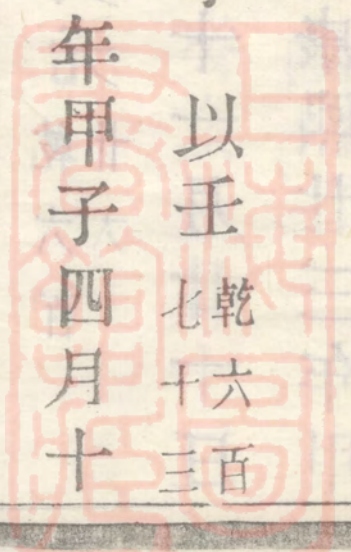 以壬乾六百
七十三
年甲子四月十